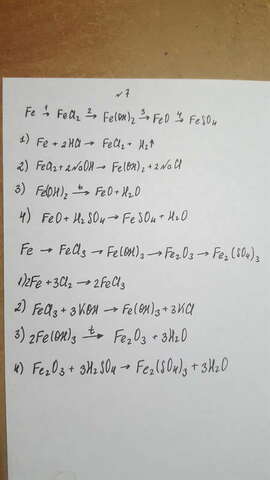 №7
Fe →¹ FeCl₂ →² Fe(OH)₂ →³ FeO →⁴ FeSO₄
1) Fe + 2HCl → FeCl₂ + H₂↑
2) FeCl₂ + 2NaOH → Fe(OH)₂ + 2NaCl
3) Fe(OH)₂ →ᵗ FeO + H₂O
4) FeO + H₂SO₄ → FeSO₄ + H₂O
Fe → FeCl₃ → Fe(OH)₃ → Fe₂O₃ → Fe₂(SO₄)₃
1) 2Fe + 3Cl₂ → 2FeCl₃
2) FeCl₃ + 3KOH → Fe(OH)₃ + 3KCl
3) 2Fe(OH)₃ →ᵗ Fe₂O₃ + 3H₂O
4) Fe₂O₃ + 3H₂SO₄ → Fe₂(SO₄)₃ + 3H₂O